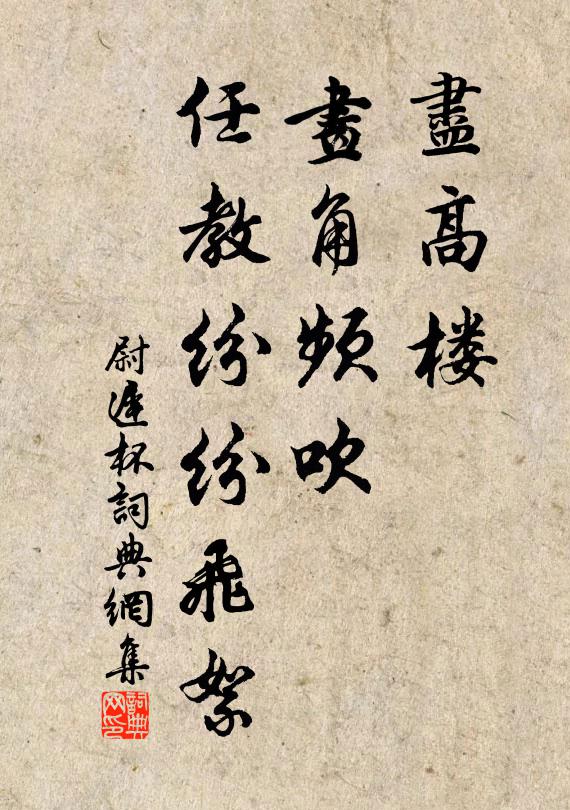 盡高楼
畫角頻吹
任教紛紛飛絮
尉遲杯詞典網集
詞典网印